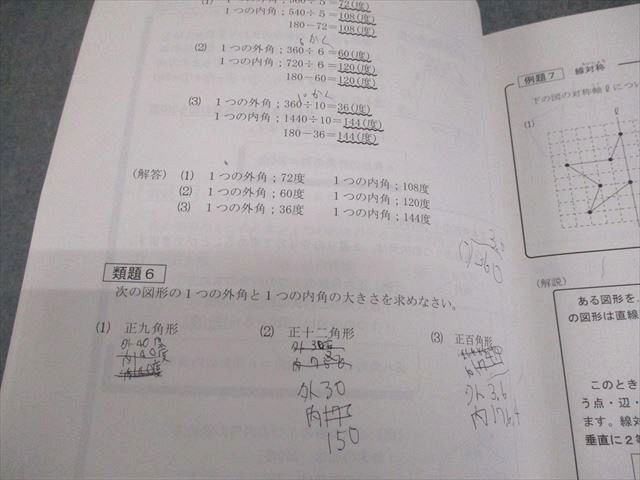 (1) 1つの外角；360÷5＝72(度)
1つの内角；540÷5＝108(度)
180−72＝108(度)
(2) 1つの外角；360÷6＝60(度)
1つの内角；720÷6＝120(度)
180−60＝120(度)
(3) 1つの外角；360÷10＝36(度)
1つの内角；1440÷10＝144(度)
180−36＝144(度)
(解答) (1) 1つの外角；72度 1つの内角；108度
(2) 1つの外角；60度 1つの内角；120度
(3) 1つの外角；36度 1つの内角；144度
類題6
次の図形の1つの外角と1つの内角の大きさを求めなさい。
(1) 正九角形
(2) 正十二角形
外30
内
150
(3) 正百角形
外3.6
内176.4
例題7 線対称
下の図の対称軸ℓについ
(1)
ℓ
(解説)
ある図形を、
の図形は直線
このとき
う点・辺・
ます。線対
垂直に2等